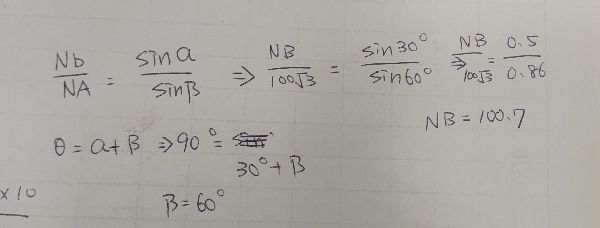 Nb/NA = sina/sinβ => NB/100√3 = sin30°/sin60° => NB/100√3 = 0.5/0.86
NB = 100.7
θ = a+B => 90° =
30° + B
β = 60°
x10